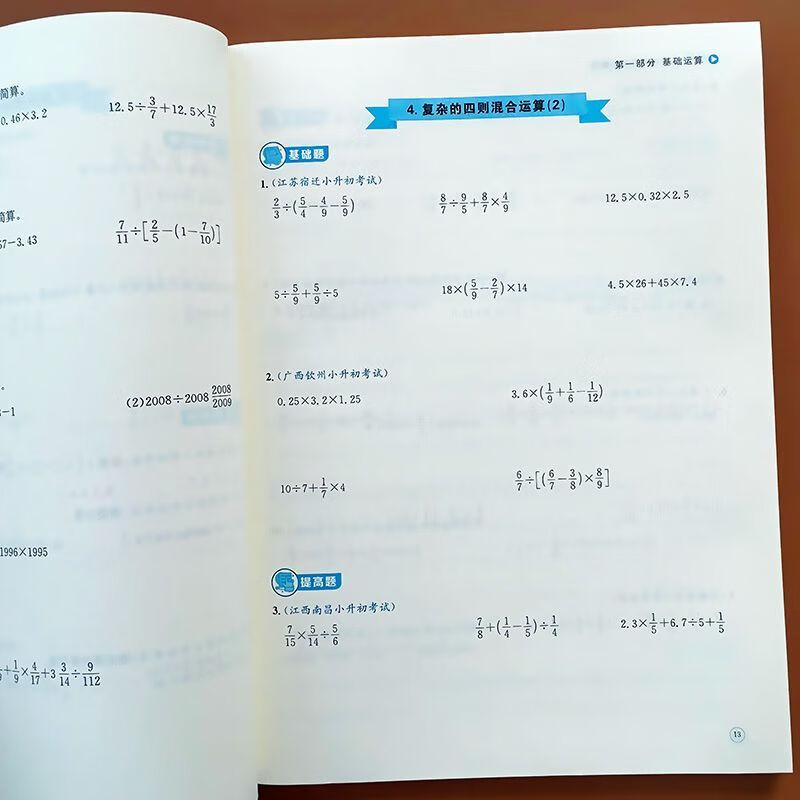 简算。
0.46×3.2
12.5÷3/7+12.5×17/3
简算。
57−3.43
7/11÷[2/5−(1−7/10)]
−1
(2)2008÷2008 2008/2009
1996×1995
+1/9×4/17+3 3/14÷9/112
第一部分 基础运算
4.复杂的四则混合运算(2)
基础题
1.(江苏宿迁小升初考试)
2/3÷(5/4−4/9−5/9)
8/7÷9/5+8/7×4/9
12.5×0.32×2.5
5÷5/9+5/9÷5
18×(5/9−2/7)×14
4.5×26+45×7.4
2.(广西钦州小升初考试)
0.25×3.2×1.25
3.6×(1/9+1/6−1/12)
10÷7+1/7×4
6/7÷[(6/7−3/8)×8/9]
提高题
3.(江西南昌小升初考试)
7/15×5/14÷5/6
7/8+(1/4−1/5)÷1/4
2.3×1/5+6.7÷5+1/5
13